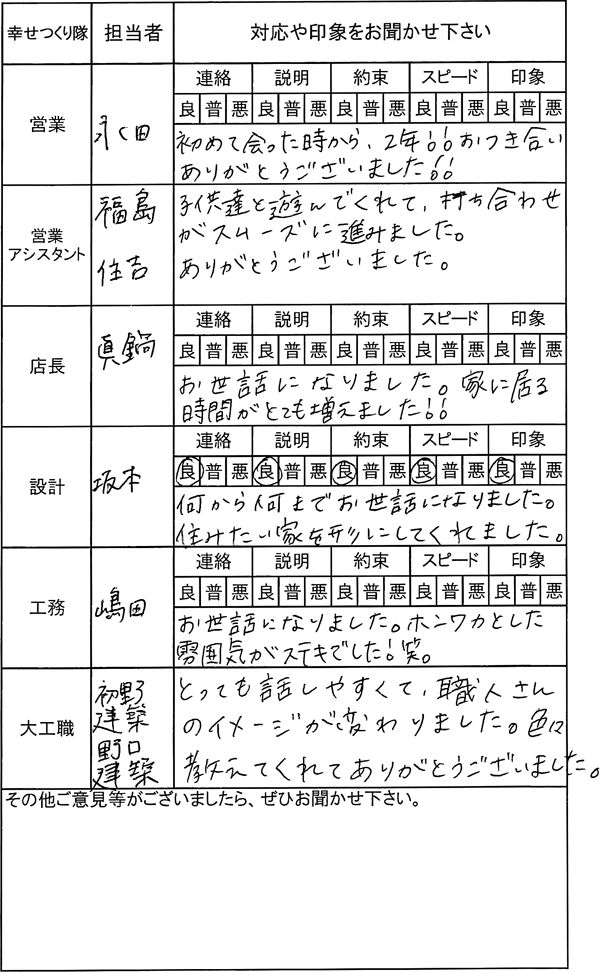 幸せつくり隊 担当者 対応や印象をお聞かせ下さい
営業 永田
連絡 説明 約束 スピード 印象
良 普 悪 良 普 悪 良 普 悪 良 普 悪 良 普 悪
初めて会った時から、2年!!おつき合い
ありがとうございました!!
営業
アシスタント
福島
住吉
子供達と遊んでくれて、打ち合わせ
がスムーズに進みました。
ありがとうございました。
店長 真鍋
連絡 説明 約束 スピード 印象
良 普 悪 良 普 悪 良 普 悪 良 普 悪 良 普 悪
お世話になりました。家に居る
時間がとても増えました!!
設計 坂本
連絡 説明 約束 スピード 印象
良 普 悪 良 普 悪 良 普 悪 良 普 悪 良 普 悪
何から何までお世話になりました。
住みたい家を形にしてくれました。
工務 嶋田
連絡 説明 約束 スピード 印象
良 普 悪 良 普 悪 良 普 悪 良 普 悪 良 普 悪
お世話になりました。ホンワカとした
雰囲気がステキでした!笑。
大工職
初野
建築
野口
建築
とっても話しやすくて、職人さん
のイメージが変わりました。色々
教えてくれてありがとうございました。
その他ご意見等がございましたら、ぜひお聞かせ下さい。